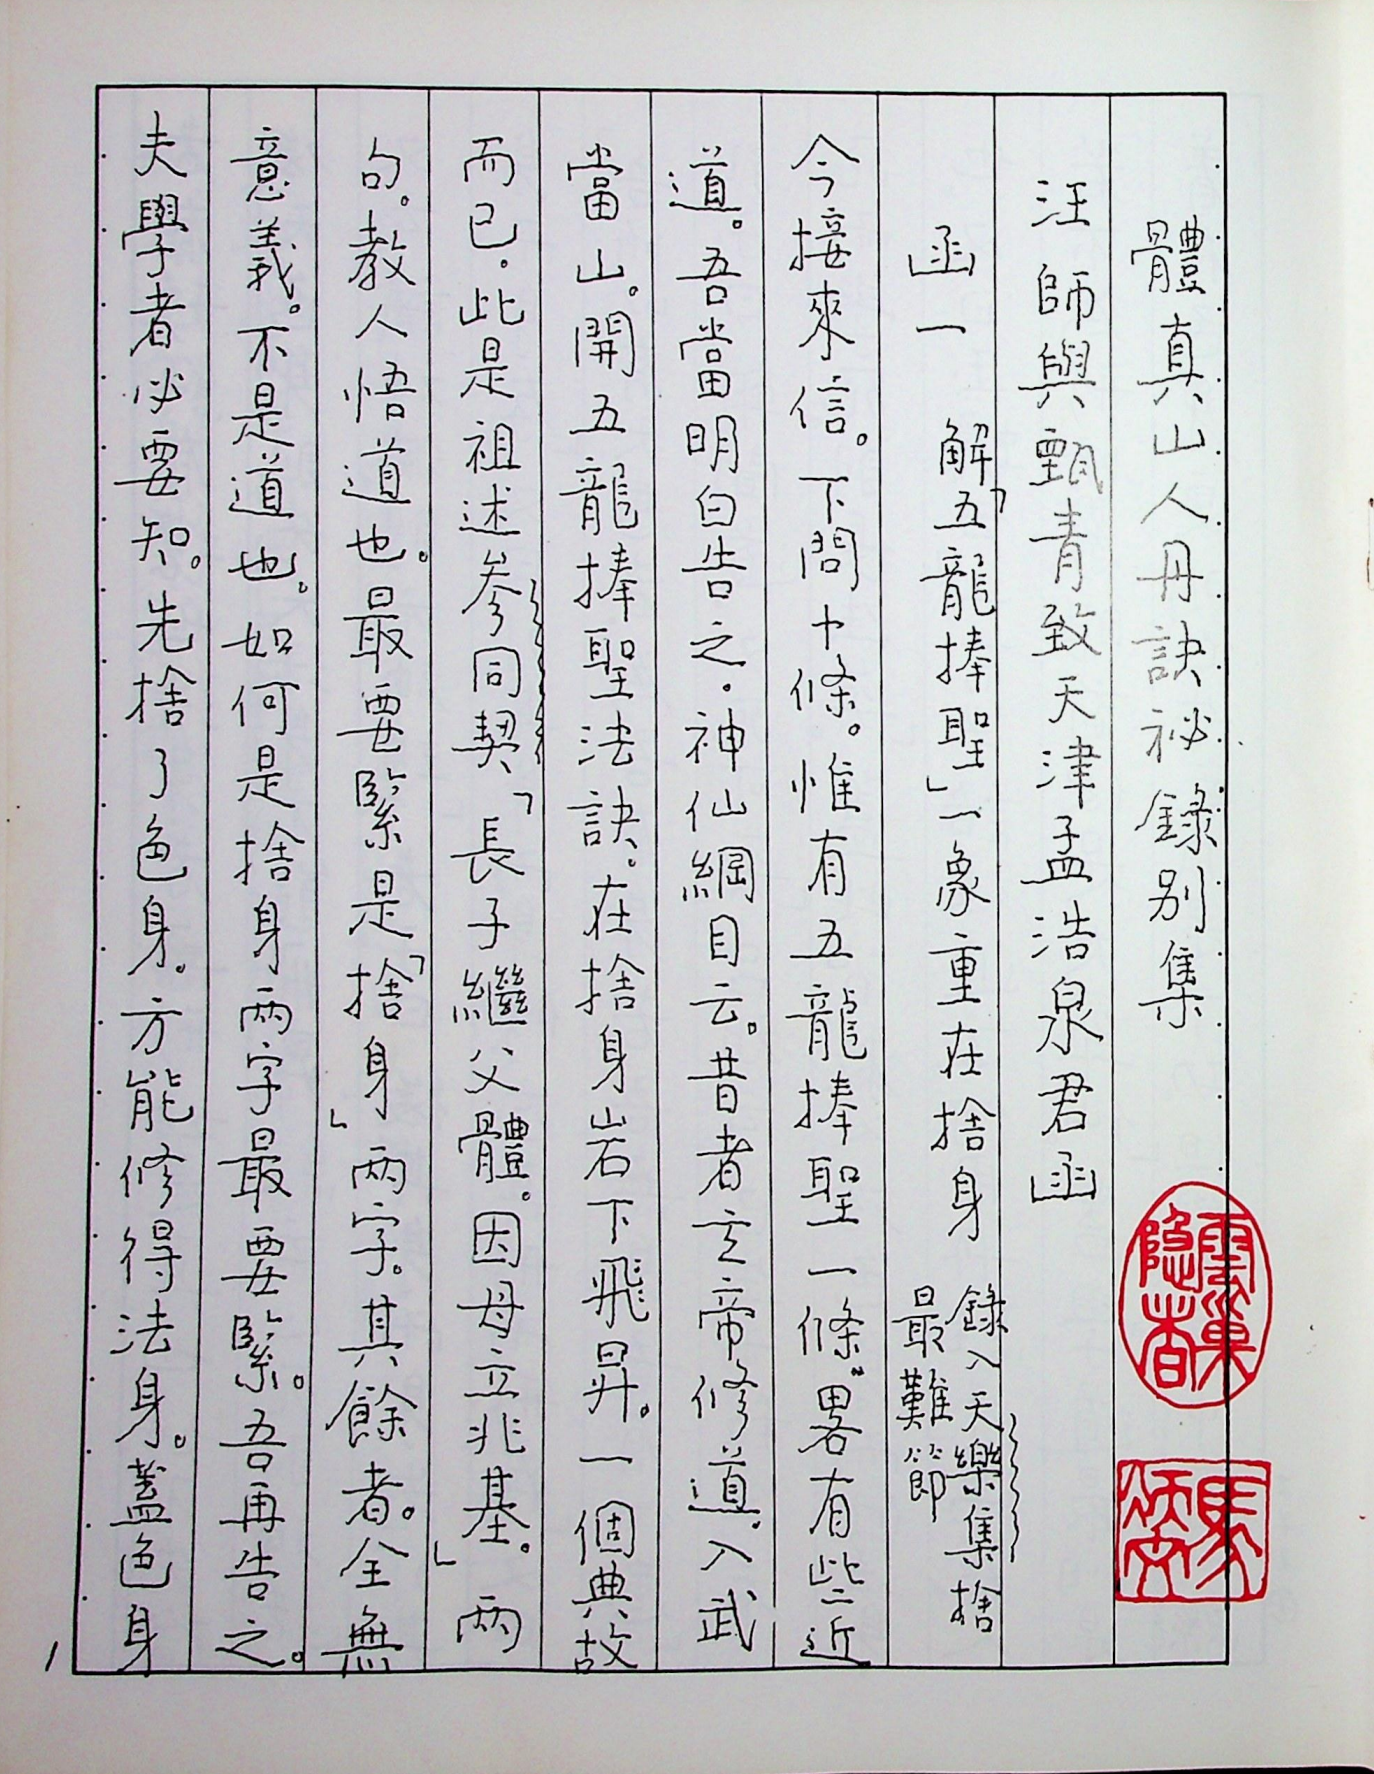 體真山人丹訣祕錄別集
汪師與甄青致天津孟浩泉君函
函一　解「五龍捧聖」一象重在捨身　錄入天樂集捨
最難節
今接來信。下問十條。惟有五龍捧聖一條。畧有些近
道。吾當明白告之。神仙綱目云。昔者玄帝修道。入武
當山。開五龍捧聖法訣。在捨身岩下飛昇。一個典故
而已。此是祖述參同契「長子繼父體。因母立兆基。」兩
句。教人悟道也。最要緊是「捨身」兩字。其餘者。全無
意義。不是道也。如何是捨身兩字最要緊。吾再告之。
夫學者必要知。先捨了色身。方能修得法身。蓋色身
1
雲巢
隐者
馬炳文